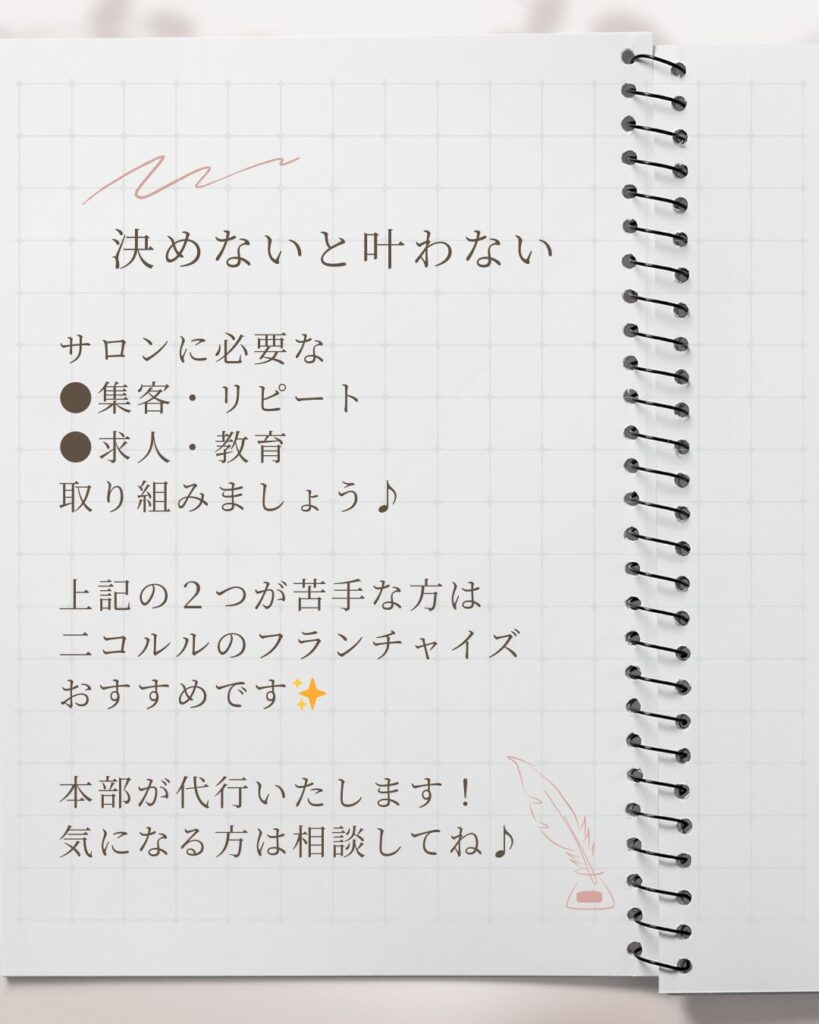 決めないと叶わない
サロンに必要な
●集客・リピート
●求人・教育
取り組みましょう♪
上記の２つが苦手な方は
二コルルのフランチャイズ
おすすめです✨
本部が代行いたします！
気になる方は相談してね♪